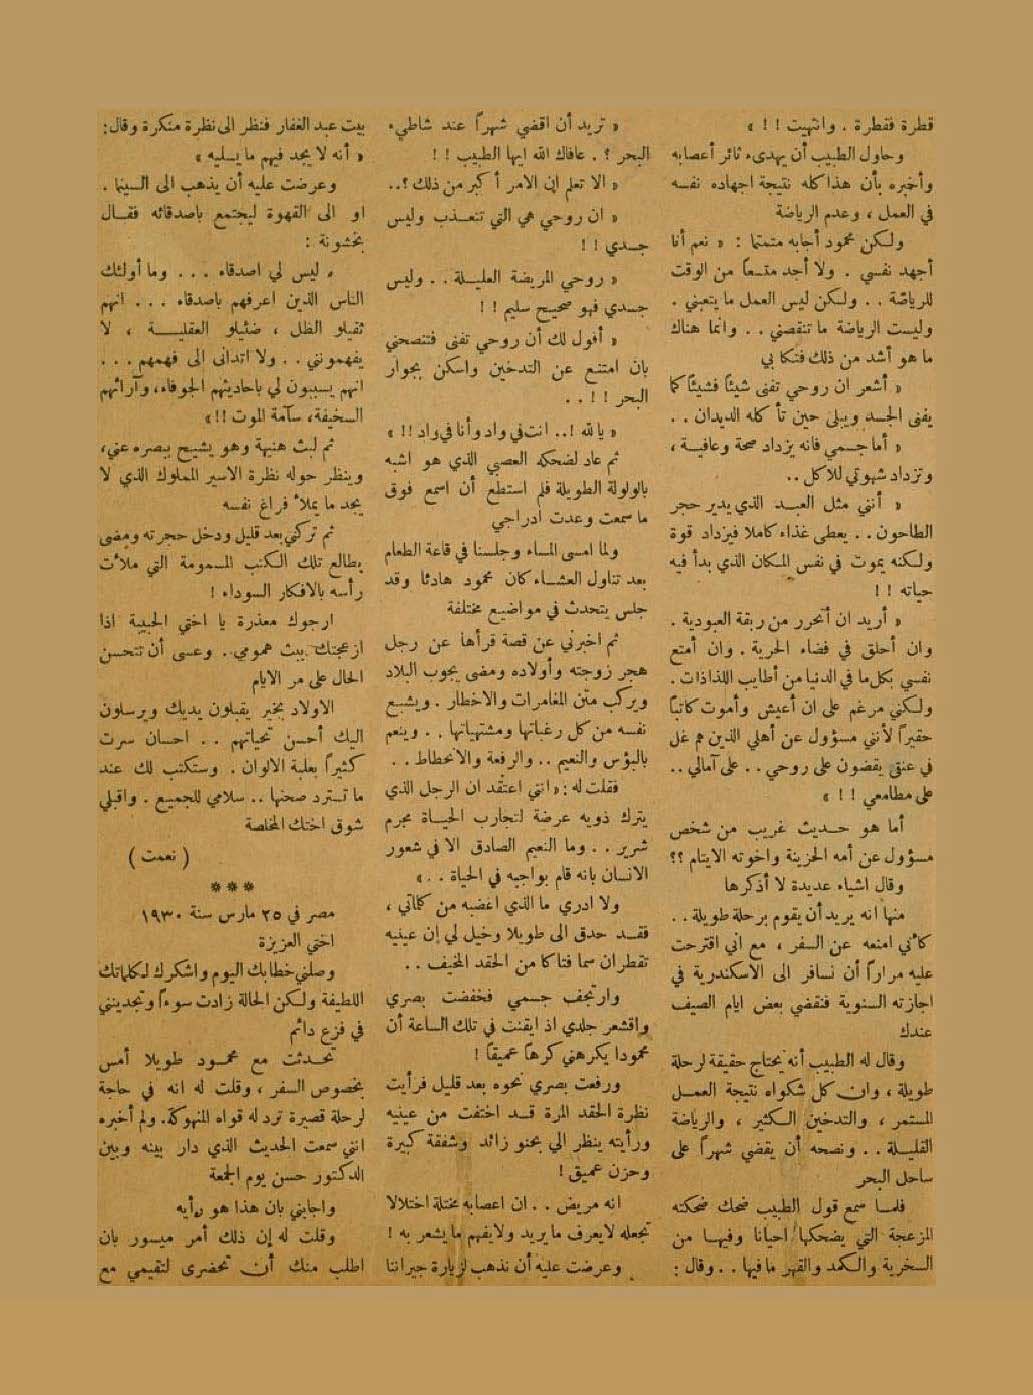 قطرة فقطرة . وانتهيت ! ! »
وحاول الطبيب أن يهدىء ثائر أعصابه
وأخبره بأن هذا كله نتيجة اجهاده نفسه
في العمل ، وعدم الرياضة
ولكن محمود أجابه متمتما : « نعم أنا
أجهد نفسي . ولا أجد متسعاً من الوقت
للرياضة . . ولكن ليس العمل ما يتعبني .
وليست الرياضة ما تنقصني . . وانما هناك
ما هو أشد من ذلك فتكا بي
« أشعر ان روحي تفنى شيئاً فشيئاً كما
يفنى الجسد ويبلى حين تأكله الديدان . .
« أما جسمي فانه يزداد صحة وعافية ،
وتزداد شهوتي للاكل . .
« أنني مثل العبد الذي يدير حجر
الطاحون . . يعطى غذاء كاملا فيزداد قوة
ولكنه يموت في نفس المكان الذي بدأ فيه
حياته ! !
« أريد ان أتحرر من ربقة العبودية .
وان أحلق في فضاء الحرية . وان أمتع
نفسي بكل ما في الدنيا من أطايب اللذاذات .
ولكني مرغم على ان أعيش وأموت كاتباً
حقيراً لأنني مسؤول عن أهلي الذين هم غل
في عنقي يقضون على روحي . . على آمالي . .
على مطامعي ! ! »
أما هو حديث غريب من شخص
مسؤول عن أمه الحزينة واخوته الايتام ؟؟
وقال اشياء عديدة لا أذكرها
منها انه يريد أن يقوم برحلة طويلة . .
كأني امنعه عن السفر ، مع اني اقترحت
عليه مراراً أن نسافر الى الاسكندرية في
اجازته السنوية فنقضي بعض ايام الصيف
عندك
وقال له الطبيب أنه يحتاج حقيقة لرحلة
طويلة ، وان كل شكواه نتيجة العمل
المستمر ، والتدخين الكثير ، والرياضة
القليلة . . ونصحه أن يقضي شهراً على
ساحل البحر
فلما سمع قول الطبيب ضحك ضحكته
المزعجة التي يضحكها احيانا وفيها من
السخرية والكمد والقهر ما فيها . . وقال :
« تريد أن اقضي شهراً عند شاطىء
البحر ؟ . عافاك الله ايها الطبيب ! !
« الا تعلم ان الامر أكبر من ذلك ؟ . .
« ان روحي هي التي تتعذب وليس
جسدي ! !
« روحي المريضة العليلة . . وليس
جسدي فهو صحيح سليم ! !
« أقول لك أن روحي تفنى فتنصحني
بان امتنع عن التدخين واسكن بجوار
البحر ! ! . .
« يالله ! . . انت في واد وأنا في واد ! ! »
ثم عاد لضحكه العصبي الذي هو اشبه
بالولولة الطويلة فلم استطع أن اسمع فوق
ما سمعت وعدت ادراجي
ولما امسى المساء وجلسنا في قاعة الطعام
بعد تناول العشاء كان محمود هادئا وقد
جلس يتحدث في مواضيع مختلفة
ثم اخبرني عن قصة قرأها عن رجل
هجر زوجته وأولاده ومضى يجوب البلاد
ويركب متن المغامرات والاخطار . ويشبع
نفسه من كل رغباتها ومشتهياتها . . وينعم
بالبؤس والنعيم . . والرفعة والانحطاط . .
فقلت له : « انني اعتقد ان الرجل الذي
يترك ذويه عرضة لتجارب الحياة مجرم
شرير . . وما النعيم الصادق الا في شعور
الانسان بانه قام بواجبه في الحياة . . »
ولا ادري ما الذي اغضبه من كلماتي ،
فقد حدق الى طويلا وخيل لي إن عينيه
تقطران سما فتاكا من الحقد المخيف . .
وارتجف جسمي فخفضت بصري
واقشعر جلدي اذ ايقنت في تلك الساعة أن
محمودا يكرهني كرهاً عميقاً !
ورفعت بصري نحوه بعد قليل فرأيت
نظرة الحقد المرة قد اختفت من عينيه
ورأيته ينظر الي بحنو زائد وشفقة كبيرة
وحزن عميق !
انه مريض . . ان اعصابه مختلة اختلالا
تجعله لايعرف ما يريد ولايفهم ما يشعر به !
وعرضت عليه أن نذهب لزيارة جيراننا
بيت عبد الغفار فنظر الى نظرة منكرة وقال :
« أنه لا يجد فيهم ما يسليه »
وعرضت عليه أن يذهب الى السينما .
او الى القهوة ليجتمع باصدقائه فقال
بخشونة :
« ليس لي اصدقاء . . . وما أولئك
الناس الذين اعرفهم باصدقاء . . . انهم
ثقيلو الظل ، ضئيلو العقلية ، لا
يفهمونني . . ولا اتدانى الى فهمهم . . .
انهم يسببون لي باحاديثهم الجوفاء، وآرائهم
السخيفة، سآمة الموت ! ! »
ثم لبث هنيهة وهو يشيح ببصره عني،
وينظر حوله نظرة الاسير المملوك الذي لا
يجد ما يملأ فراغ نفسه
ثم تركني بعد قليل ودخل حجرته ومضى
يطالع تلك الكتب المسمومة التي ملأت
رأسه بالافكار السوداء !
ارجوك معذرة يا اختي الحبيبة اذا
ازعجتك ببث همومي . وعسى أن تتحسن
الحال على مر الايام
الاولاد بخير يقبلون يديك ويرسلون
اليك أحسن تحياتهم . . احسان سرت
كثيراً بعلبة الالوان . وستكتب لك عند
ما تسترد صحتها . . سلامي للجميع . واقبلي
شوق اختك المخلصة
( نعمت )
***
مصر في ٢٥ مارس سنة ١٩٣٠
اختي العزيزة
وصلني خطابك اليوم واشكرك لكلماتك
اللطيفة ولكن الحالة زادت سوءاً وتجدينني
في فزع دائم
تحدثت مع محمود طويلا أمس
بخصوص السفر ، وقلت له انه في حاجة
لرحلة قصيرة ترد له قواه المنهوكة. ولم أخبره
انني سمعت الحديث الذي دار بينه وبين
الدكتور حسن يوم الجمعة
واجابني بان هذا هو رأيه
وقلت له إن ذلك أمر ميسور بان
اطلب منك أن تحضرى لتقيمي مع